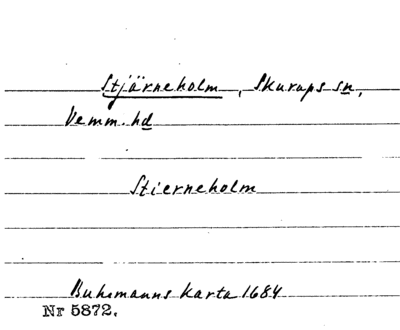 Stjärneholm, Skurups sn,
Vemm. hd
Stierneholm
Buhrmanns karta 1684
Nr 5872.